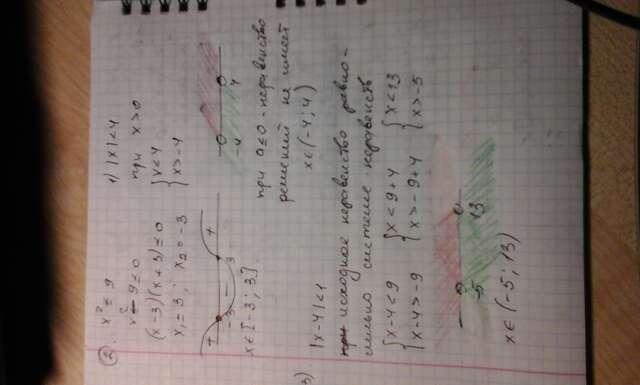 2. x² ≤ 9
x² - 9 ≤ 0
(x-3)(x+3) ≤ 0
x₁ = 3; x₂ = -3
+ - +
-3 3
x ∈ [-3; 3]
1) |x| < 4
при x > 0
{ x < 4
{ x > -4
-4 4
при a ≤ 0 - неравенство
решений не имеет
x ∈ (-4; 4)
3) |x-4| < 1
исходное неравенство равно-
сильно системе неравенств
{ x-4 < 9 { x < 9+4 { x < 13
{ x-4 > -9 { x > -9+4 { x > -5
-5 13
x ∈ (-5; 13)